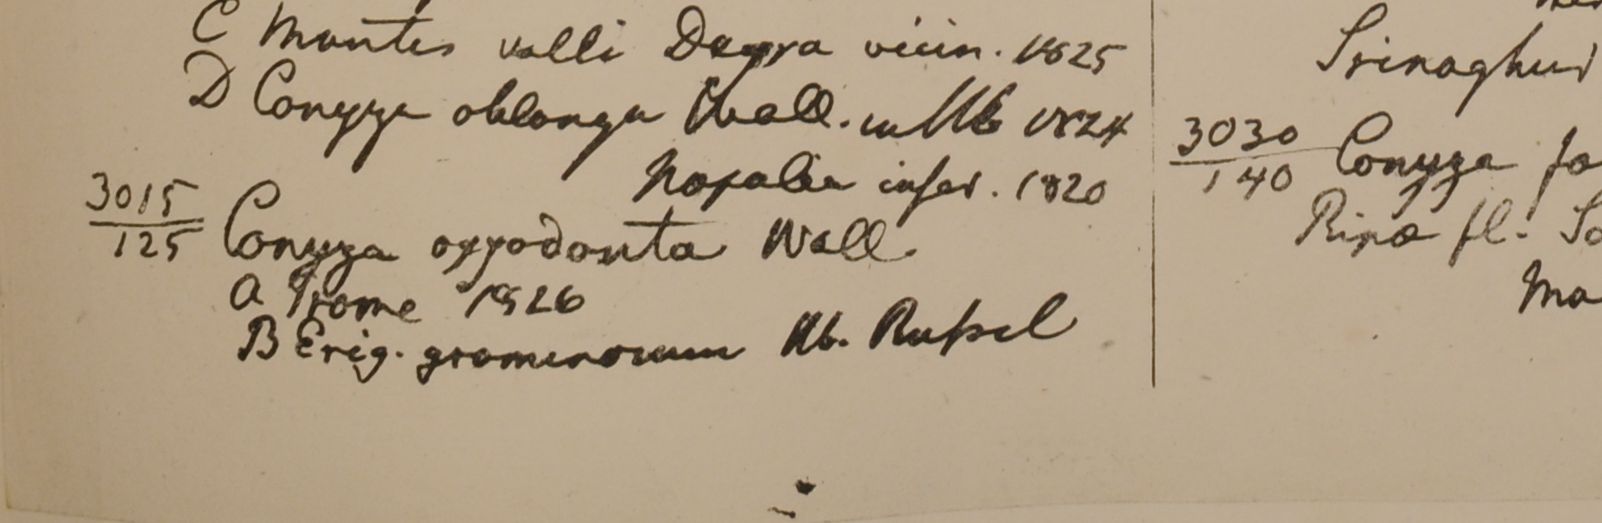 C Montes valli Deyra vicin. 1825
D Conyza oblonga Wall. in Hb 1824
Napalia infer. 1820
3015
125 Conyza oxyodonta Wall.
A Prome 1826
B Erig. graminorum Hb. Russel
Srinaghur
3030
140 Conyza fa
Ripa fl. Sa
Mo